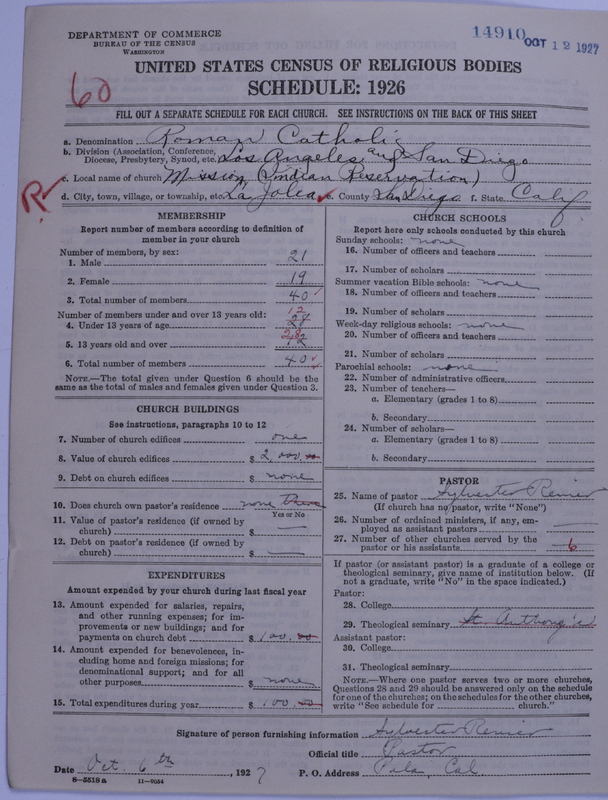 DEPARTMENT OF COMMERCE
BUREAU OF THE CENSUS
WASHINGTON
14910 OCT 12 1927
UNITED STATES CENSUS OF RELIGIOUS BODIES
SCHEDULE: 1926
60
FILL OUT A SEPARATE SCHEDULE FOR EACH CHURCH. SEE INSTRUCTIONS ON THE BACK OF THIS SHEET
a. Denomination Roman Catholic
b. Division (Association, Conference, Diocese, Presbytery, Synod, etc. Los Angeles and San Diego
c. Local name of church Mission (Indian Reservation)
R
d. City, town, village, or township, etc. La Jolla e. County San Diego f. State Calif
MEMBERSHIP
Report number of members according to definition of member in your church
Number of members, by sex:
1. Male 21
2. Female 19
3. Total number of members 40
Number of members under and over 13 years old:
4. Under 13 years of age 28 12
5. 13 years old and over 12 28
6. Total number of members 40
NOTE.—The total given under Question 6 should be the same as the total of males and females given under Question 3.
CHURCH BUILDINGS
See instructions, paragraphs 10 to 12
7. Number of church edifices one
8. Value of church edifices $ 2,000.00
9. Debt on church edifices $ none
10. Does church own pastor's residence none
Yes or No
11. Value of pastor's residence (if owned by church) $
12. Debt on pastor's residence (if owned by church) $
EXPENDITURES
Amount expended by your church during last fiscal year
13. Amount expended for salaries, repairs, and other running expenses; for improvements or new buildings; and for payments on church debt $ 100.00
14. Amount expended for benevolences, including home and foreign missions; for denominational support; and for all other purposes $ none
15. Total expenditures during year $ 100.00
CHURCH SCHOOLS
Report here only schools conducted by this church
Sunday schools: none
16. Number of officers and teachers
17. Number of scholars
Summer vacation Bible schools: none
18. Number of officers and teachers
19. Number of scholars
Week-day religious schools: none
20. Number of officers and teachers
21. Number of scholars
Parochial schools: none
22. Number of administrative officers
23. Number of teachers—
a. Elementary (grades 1 to 8)
b. Secondary
24. Number of scholars—
a. Elementary (grades 1 to 8)
b. Secondary
PASTOR
25. Name of pastor Sylvester Renier
(If church has no pastor, write "None")
26. Number of ordained ministers, if any, employed as assistant pastors
27. Number of other churches served by the pastor or his assistants 6
If pastor (or assistant pastor) is a graduate of a college or theological seminary, give name of institution below. (If not a graduate, write "No" in the space indicated.)
Pastor:
28. College
29. Theological seminary St. Anthony's
Assistant pastor:
30. College
31. Theological seminary
NOTE.—Where one pastor serves two or more churches, Questions 28 and 29 should be answered only on the schedule for one of the churches; on the schedules for the other churches, write "See schedule for church."
Signature of person furnishing information Sylvester Renier
Official title Pastor
Date Oct. 6th, 1927 P. O. Address Pala, Cal
8—5518 a 11—9054